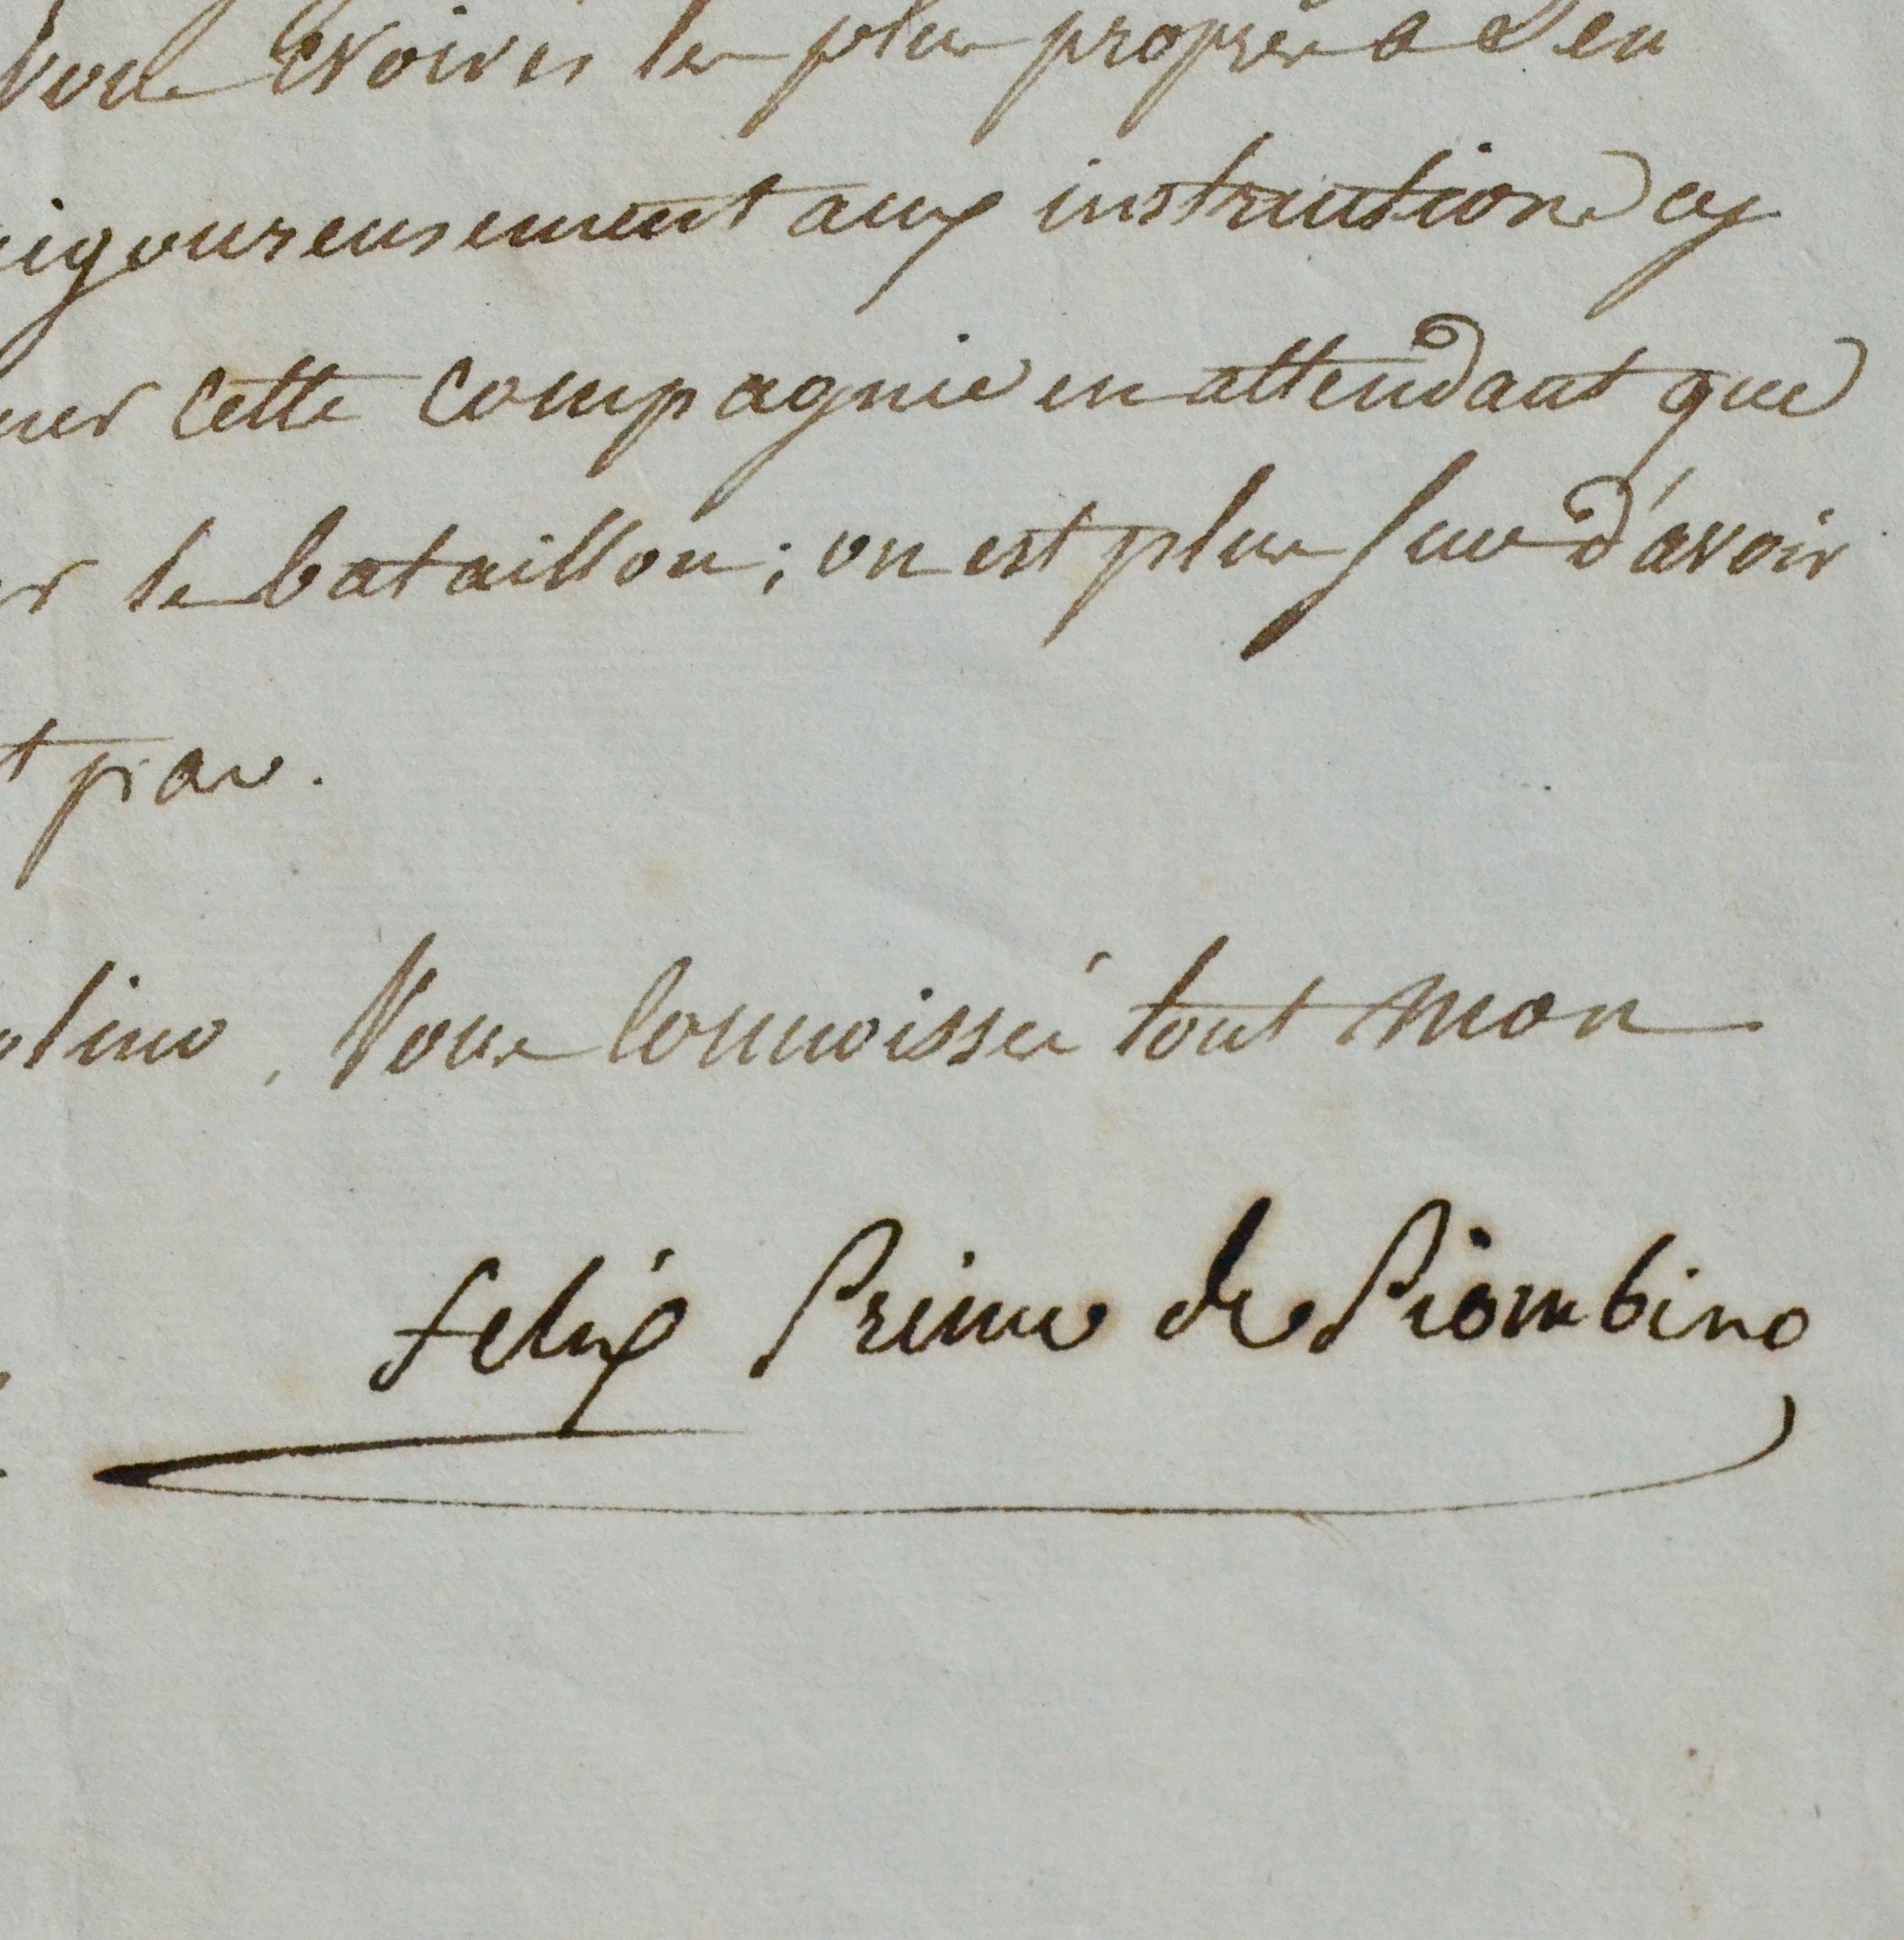 Vous croirés les plus propres à s'en
igoureusement aux instructions cy
ner cette Compagnie en attendant que
r le bataillon; on est plus sur d'avoir
t pas.
lino, Vous Connoissés tout mon
felix Prince de Piombino